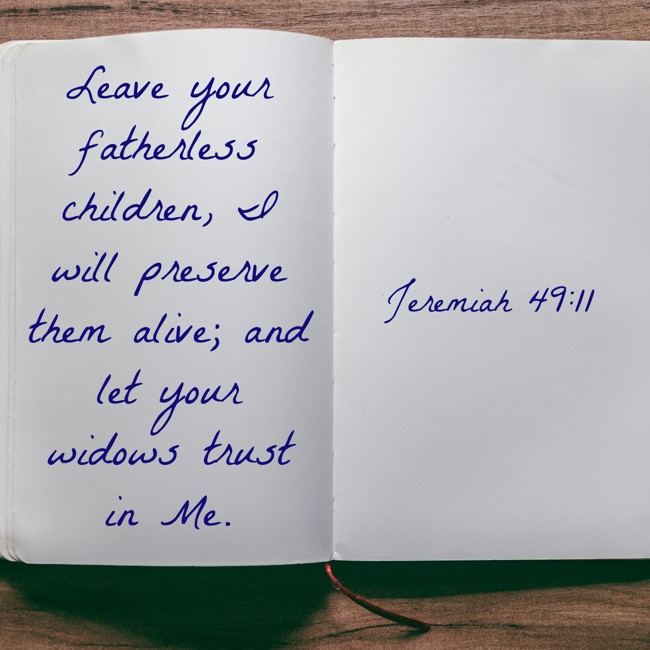 Leave your
fatherless
children, I
will preserve
them alive; and
let your
widows trust
in Me.
Jeremiah 49:11